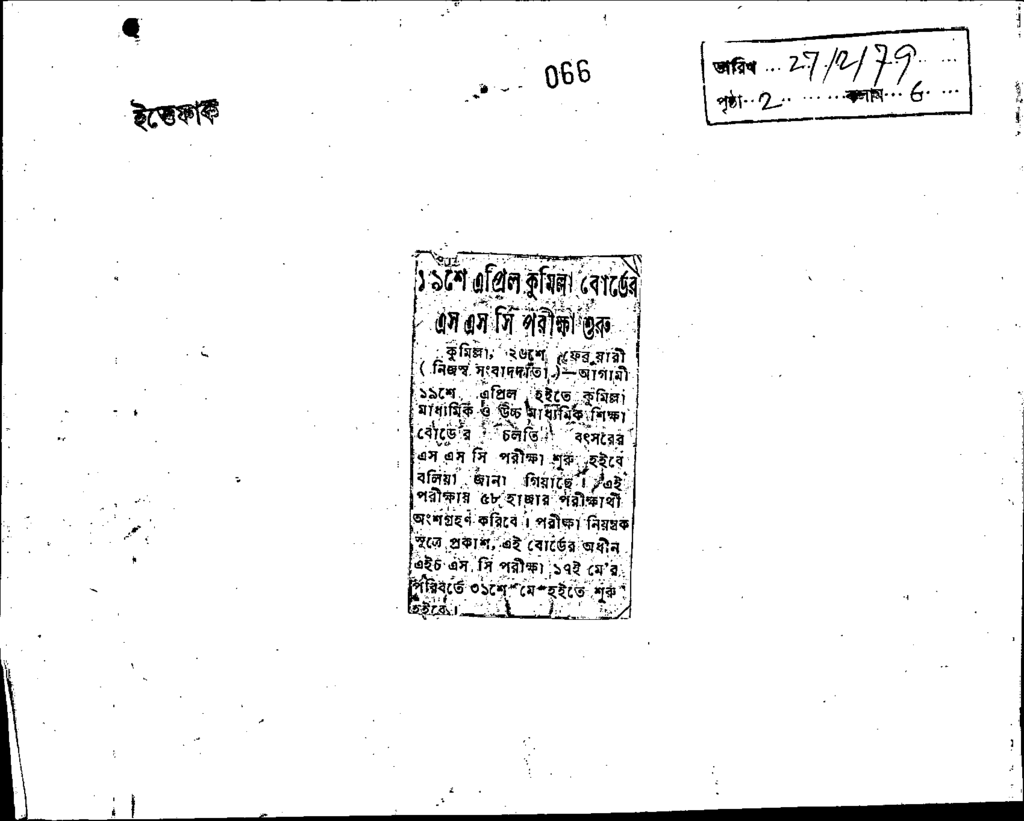 ইত্তেফাক
066
তারিখ ... 27/2/79 ... ...
পৃষ্ঠা ... 2 ... ... কলাম ... 6 ... ...
১৯শে এপ্রিল কুমিল্লা বোর্ডের
এস এস সি পরীক্ষা শুরু
কুমিল্লা, ২৬শে ফেব্রুয়ারী
( নিজস্ব সংবাদদাতা )—আগামী
১৯শে এপ্রিল হইতে কুমিল্লা
মাধ্যমিক ও উচ্চ মাধ্যমিক শিক্ষা
বোর্ডের চলতি বৎসরের
এস এস সি পরীক্ষা শুরু হইবে
বলিয়া জানা গিয়াছে । এই
পরীক্ষায় ৫৮ হাজার পরীক্ষার্থী
অংশগ্রহণ করিবে । পরীক্ষা নিয়ন্ত্রক
সূত্রে প্রকাশ, এই বোর্ডের অধীন
এইচ এস সি পরীক্ষা ১৭ই মে'র
পরিবর্তে ৩১শে মে হইতে শুরু
হইবে ।